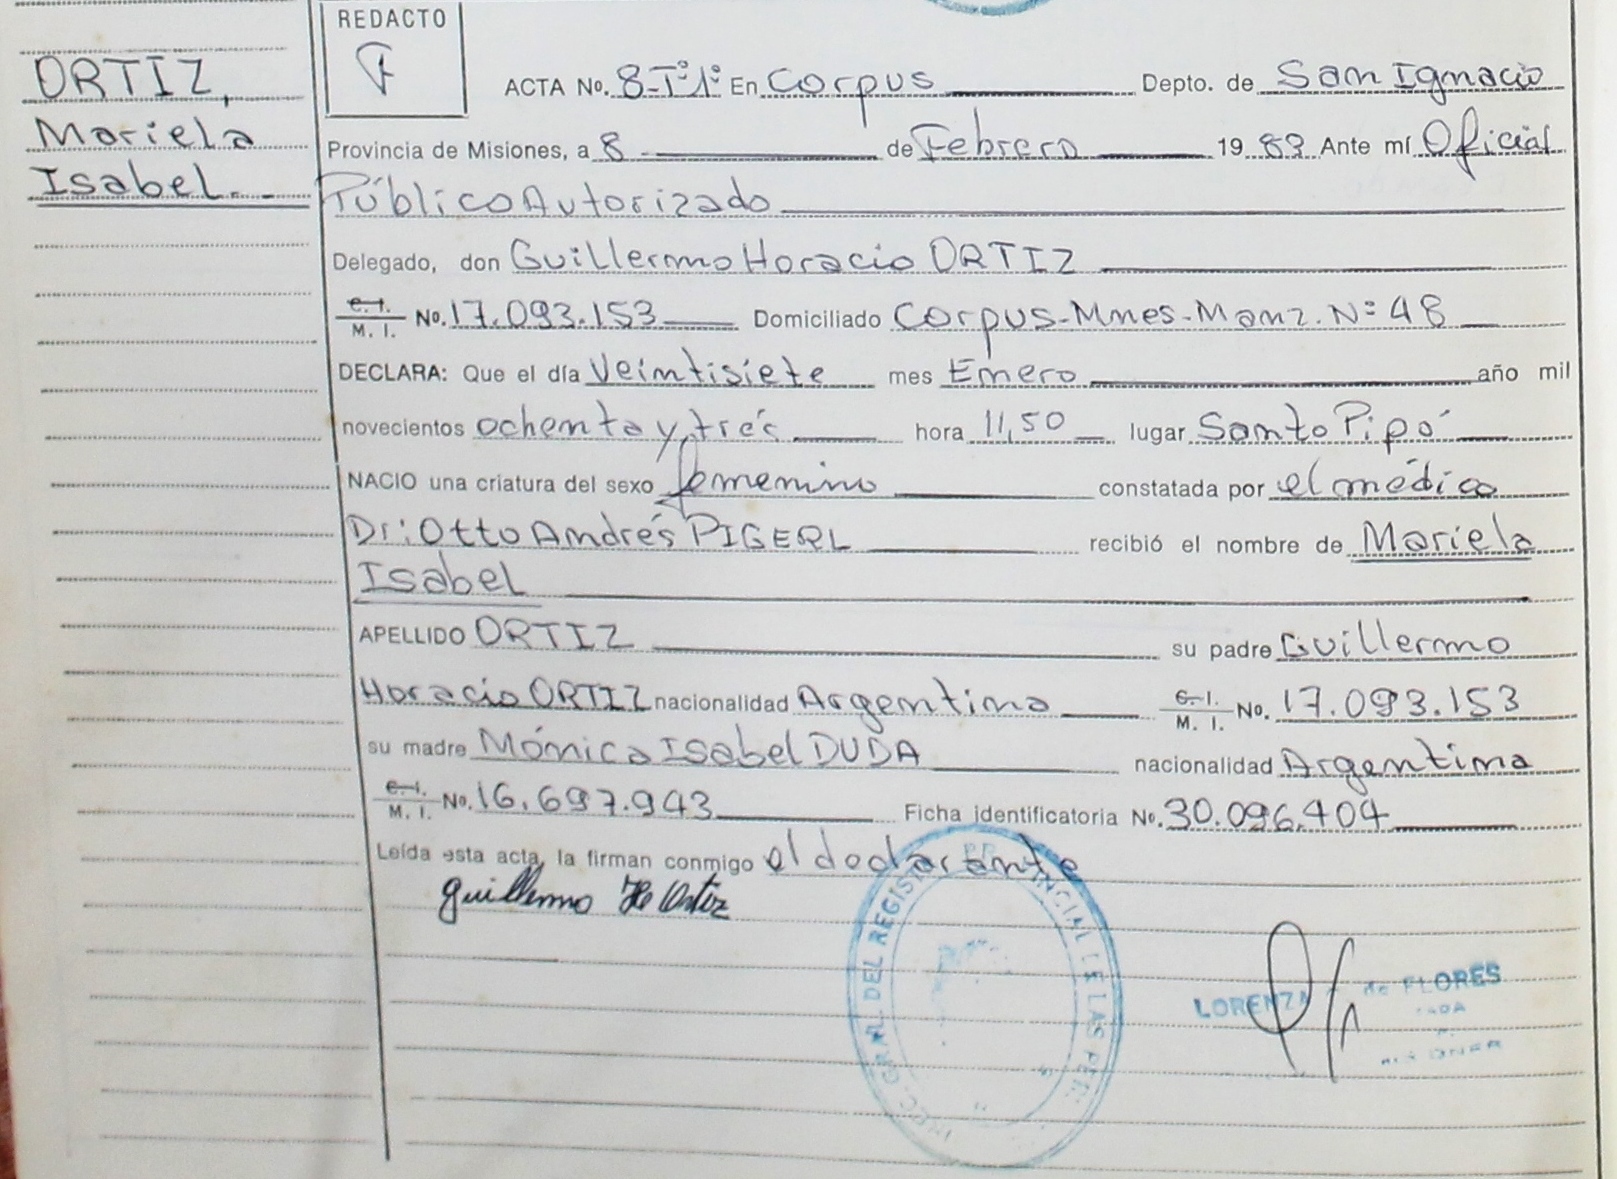 REDACTO
ORTIZ,
Mariela
Isabel.
ACTA No. 8-Tº1º En Corpus Depto. de San Ignacio
Provincia de Misiones, a 8 de Febrero 19 83 Ante mí Oficial
Público Autorizado
Delegado, don Guillermo Horacio ORTIZ
C. I. / M. I. No. 17.093.153 Domiciliado Corpus-Mnes-Manz. Nº 48
DECLARA: Que el día Veintisiete mes Enero año mil
novecientos ochenta y trés hora 11,50 lugar Santo Pipó
NACIO una criatura del sexo femenino constatada por el médico
Dr: Otto Andrés PIGERL recibió el nombre de Mariela
Isabel
APELLIDO ORTIZ su padre Guillermo
Horacio ORTIZ nacionalidad Argentina C. I. / M. I. No. 17.093.153
su madre Mónica Isabel DUDA nacionalidad Argentina
C. I. / M. I. No. 16.697.943 Ficha identificatoria No. 30.096.404
Leída esta acta, la firman conmigo el declarante
Guillermo H Ortiz
GRAL. DEL REGIST PROVINCIAL DE LAS PER
LORENZA de FLORES